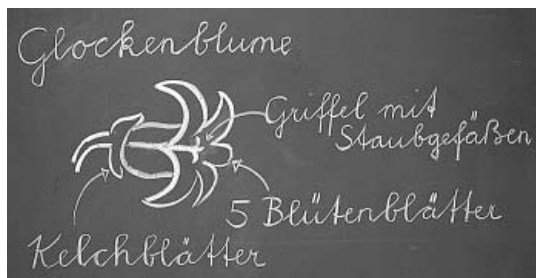 Glockenblume
Griffel mit
Staubgefäßen
5 Blütenblätter
Kelchblätter